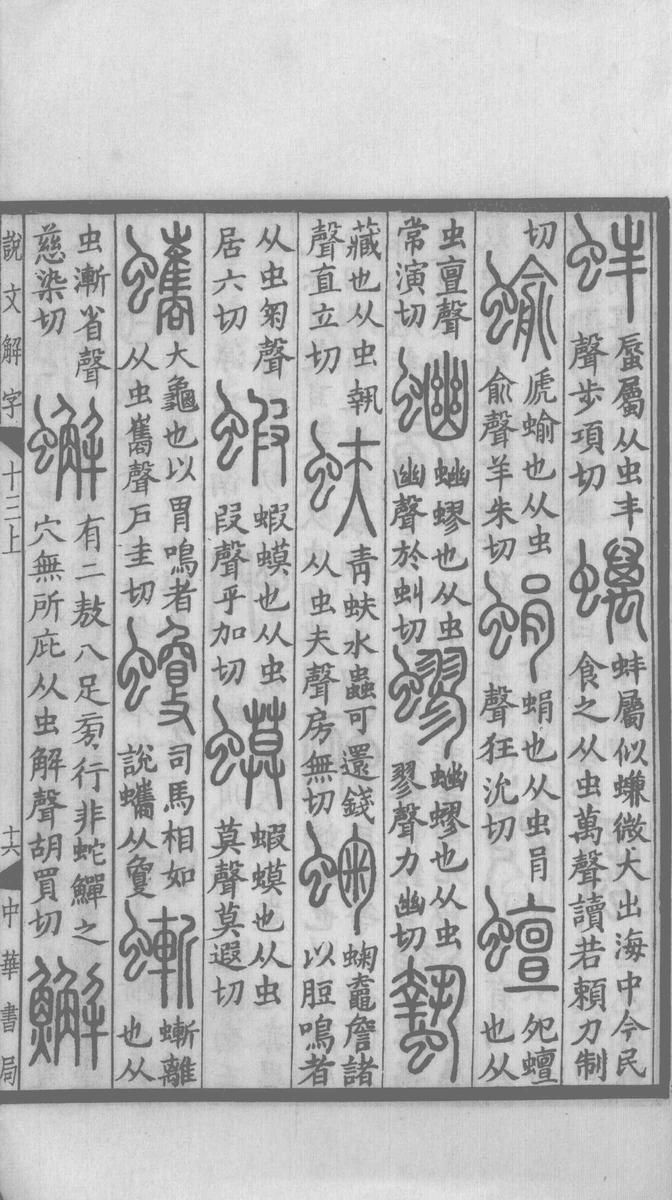 蚌蜃屬从虫丰聲步項切蠇蚌屬似螊微大出海中今民食之从虫萬聲讀若賴力制
切蝓虒蝓也从虫俞聲羊朱切蜎蜎也从虫肙聲狂沇切蟺夗蟺也从
虫亶聲常演切⿰虫幽⿰虫幽蟉也从虫幽聲於虯切蟉⿰虫幽蟉也从虫翏聲力幽切蟄
藏也从虫執聲直立切蚨青蚨水蟲可還錢从虫夫聲房無切䗇䗇鼀詹諸以脰鳴者
从虫匊聲居六切蝦蝦蟆也从虫叚聲乎加切蟆蝦蟆也从虫莫聲莫遐切
蠵大龜也以胃鳴者从虫巂聲戶圭切⿰虫敻司馬相如說蠵从敻螹螹離也从
虫漸省聲慈染切蠏有二敖八足旁行非蛇鱓之穴無所庇从虫解聲胡買切⿰魚解
說文解字 十三上 十六 中華書局